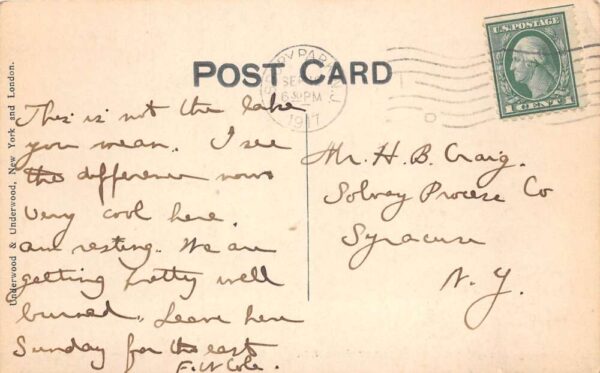 POST CARD
U.S. POSTAGE
1 CENT 1
PARK, N.J.
SEP
6 PM
1917
This is not the lake
you mean. I see
the difference now
Very cool here.
am resting. We are
getting pretty well
burned. Leave here
Sunday for the east
F. W. Cole.
Mr. H. B. Craig.
Solvay Process Co
Syracuse
N. Y.
Underwood & Underwood, New York and London.